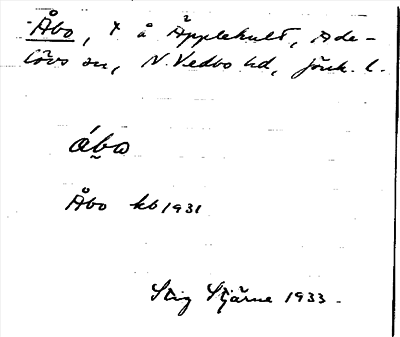 Åbo, † å Äpplehult, Ade-
lövs sn, N. Vedbo hd, Jönk. l.
åbo
Åbo kb 1931
Stig Stjärne 1933.